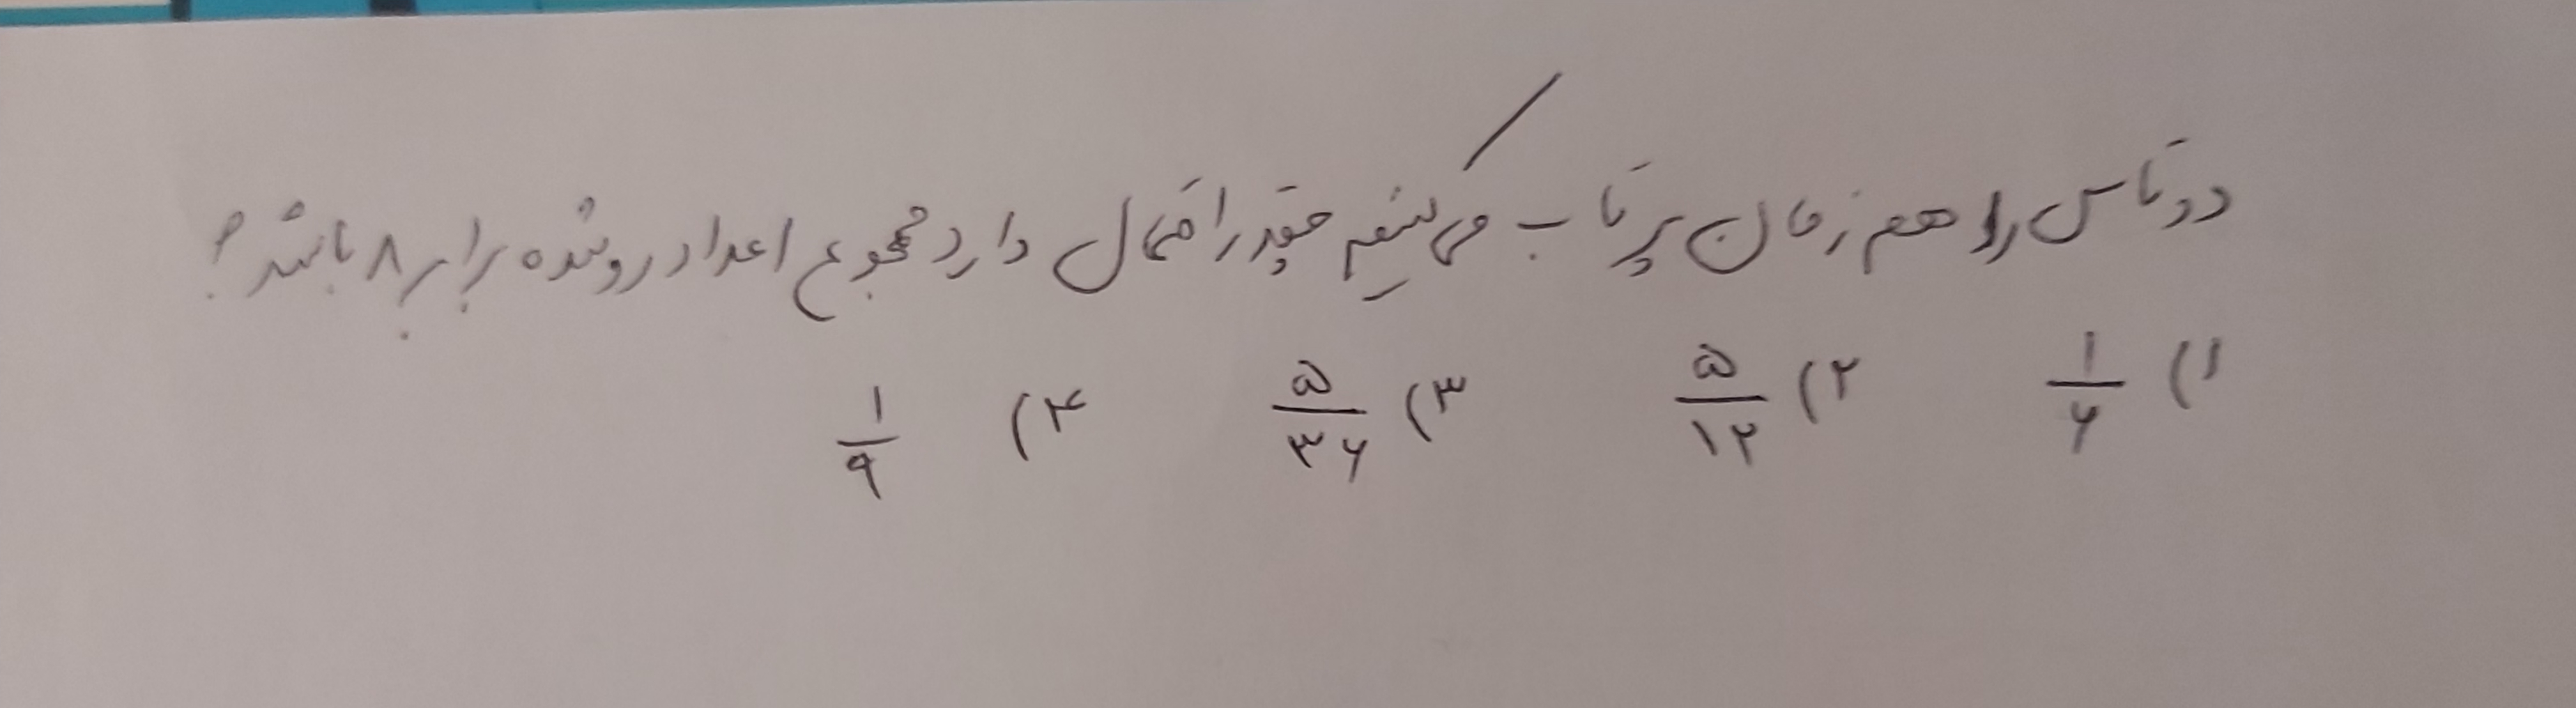 دو تاس را هم زمان پرتاب می کنیم چقدر احتمال دارد مجموع اعداد رو شده برابر ۸ باشد؟
۱) ۱/۶ ۲) ۵/۱۲ ۳) ۵/۳۶ ۴) ۱/۹